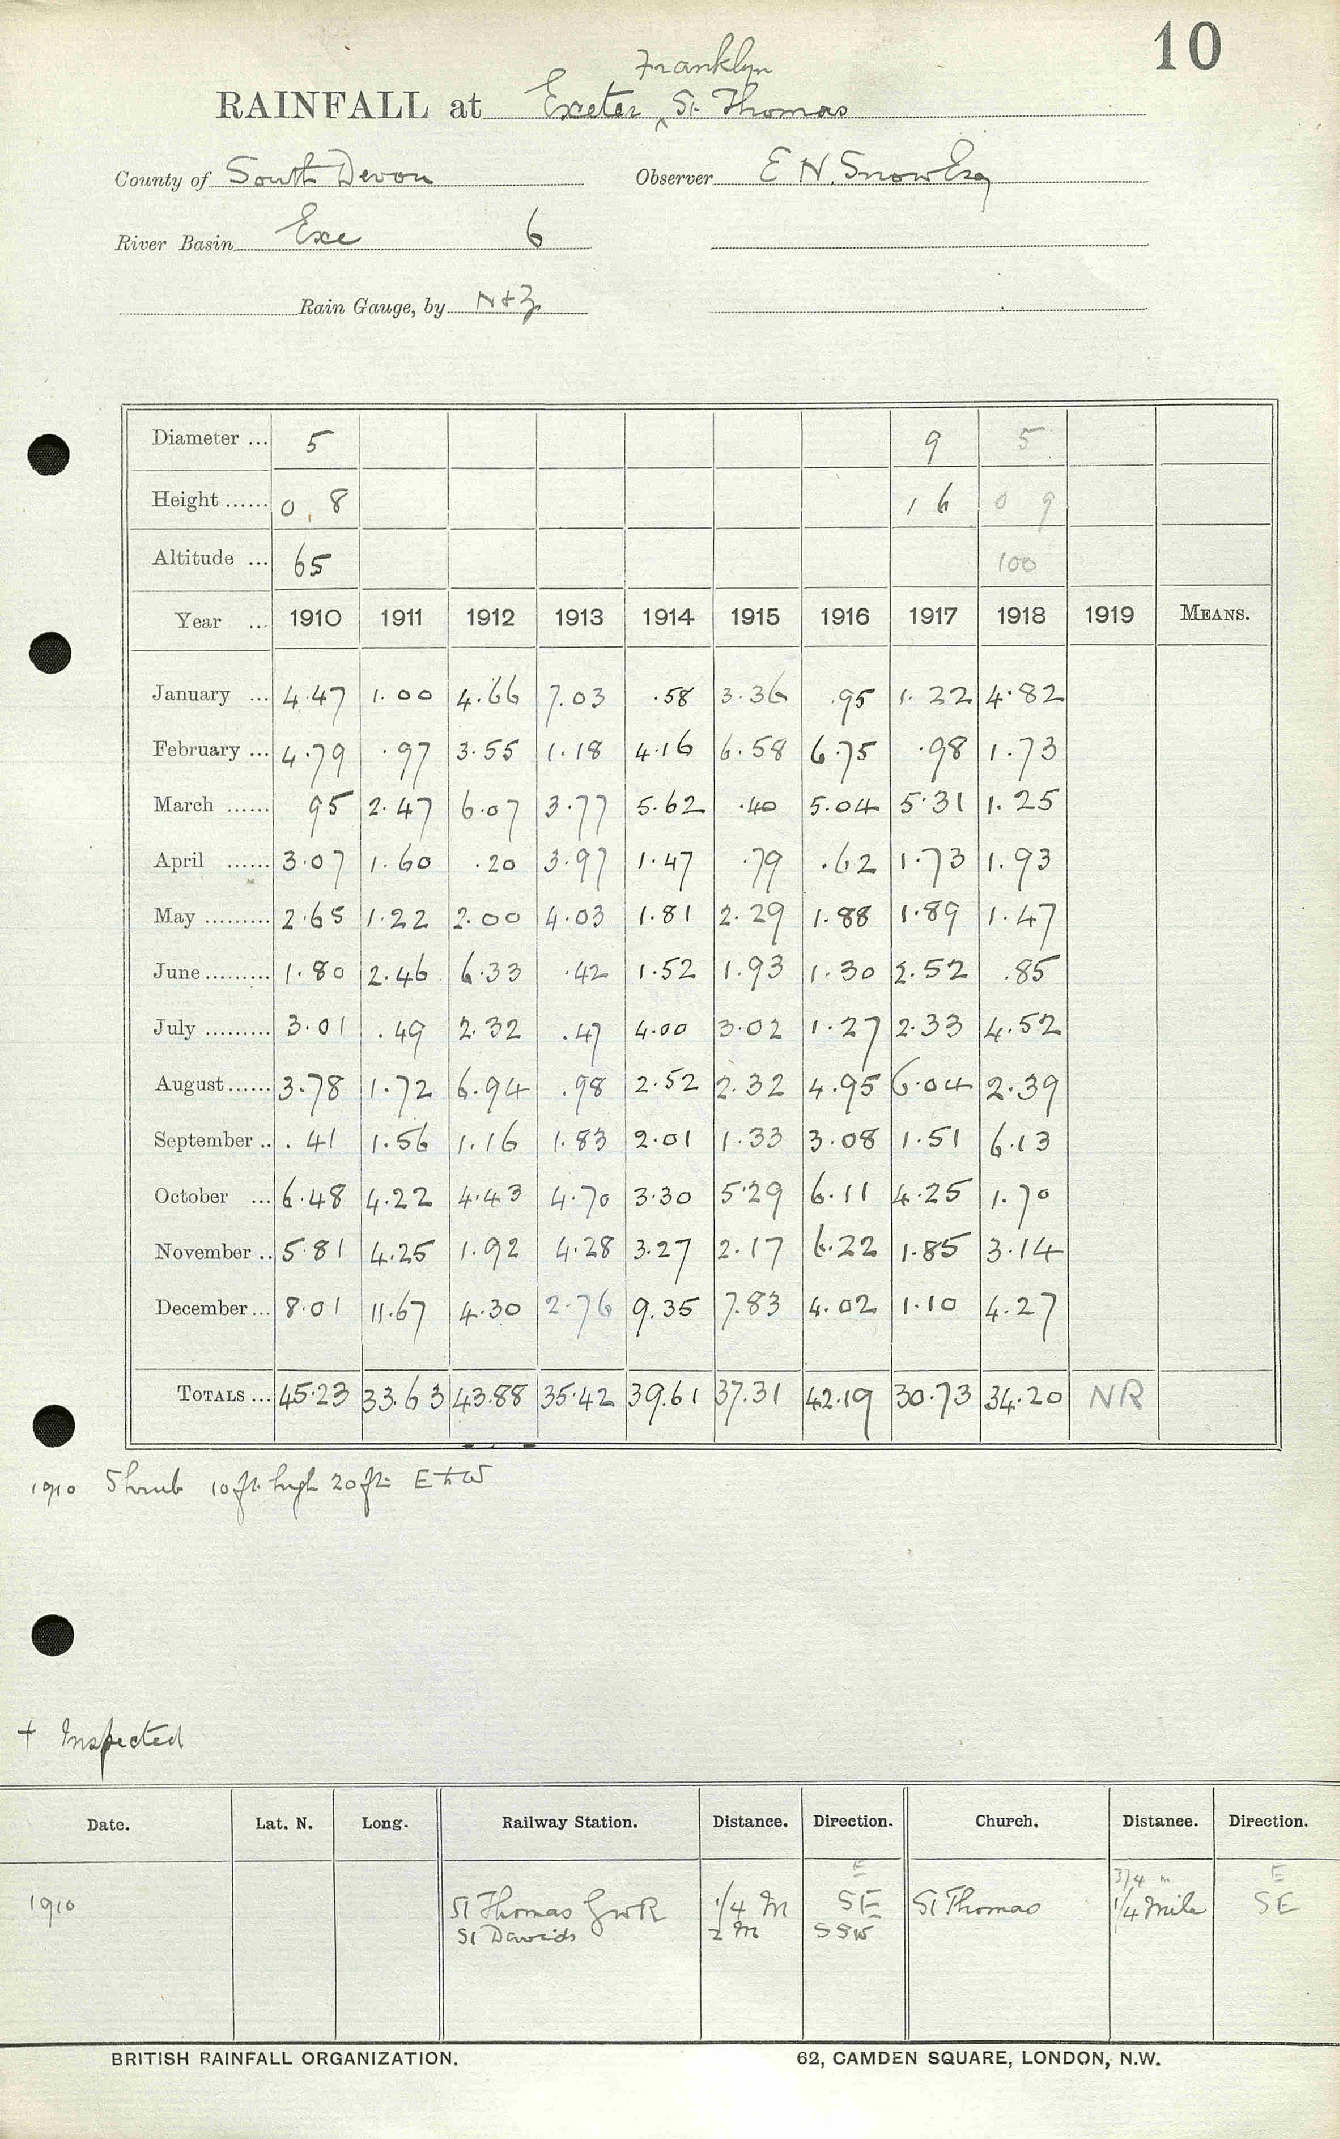 10
Franklyn
RAINFALL at Exeter, St Thomas
County of South Devon Observer E N. Snow Esq
River Basin Exe 6
Rain Gauge, by N+Z
Diameter ... 5 9 5
Height ...... 0 8 1 6 0 9
Altitude ... 65 100
Year ... 1910 1911 1912 1913 1914 1915 1916 1917 1918 1919 MEANS.
January ... 4.47 1.00 4.66 7.03 .58 3.36 .95 1.22 4.82
February ... 4.79 .97 3.55 1.18 4.16 6.58 6.75 .98 1.73
March ...... 95 2.47 6.07 3.77 5.62 .40 5.04 5.31 1.25
April ...... 3.07 1.60 .20 3.97 1.47 .79 .62 1.73 1.93
May ......... 2.65 1.22 2.00 4.03 1.81 2.29 1.88 1.89 1.47
June ......... 1.80 2.46 6.33 .42 1.52 1.93 1.30 2.52 .85
July ......... 3.01 .49 2.32 .47 4.00 3.02 1.27 2.33 4.52
August ...... 3.78 1.72 6.94 .98 2.52 2.32 4.95 6.04 2.39
September .. .41 1.56 1.16 1.83 2.01 1.33 3.08 1.51 6.13
October ... 6.48 4.22 4.43 4.70 3.30 5.29 6.11 4.25 1.70
November .. 5.81 4.25 1.92 4.28 3.27 2.17 6.22 1.85 3.14
December ... 8.01 11.67 4.30 2.76 9.35 7.83 4.02 1.10 4.27
TOTALS ... 45.23 33.63 43.88 35.42 39.61 37.31 42.19 30.73 34.20 NR
1910 Shrub 10 ft. high 20 ft. E + W
+ Inspected
Date. Lat. N. Long. Railway Station. Distance. Direction. Church. Distance. Direction.
E 3/4 m E
1910 St Thomas GWR 1/4 M SE St Thomas 1/4 Mile SE
St Davids 2 M SSW
BRITISH RAINFALL ORGANIZATION. 62, CAMDEN SQUARE, LONDON, N.W.